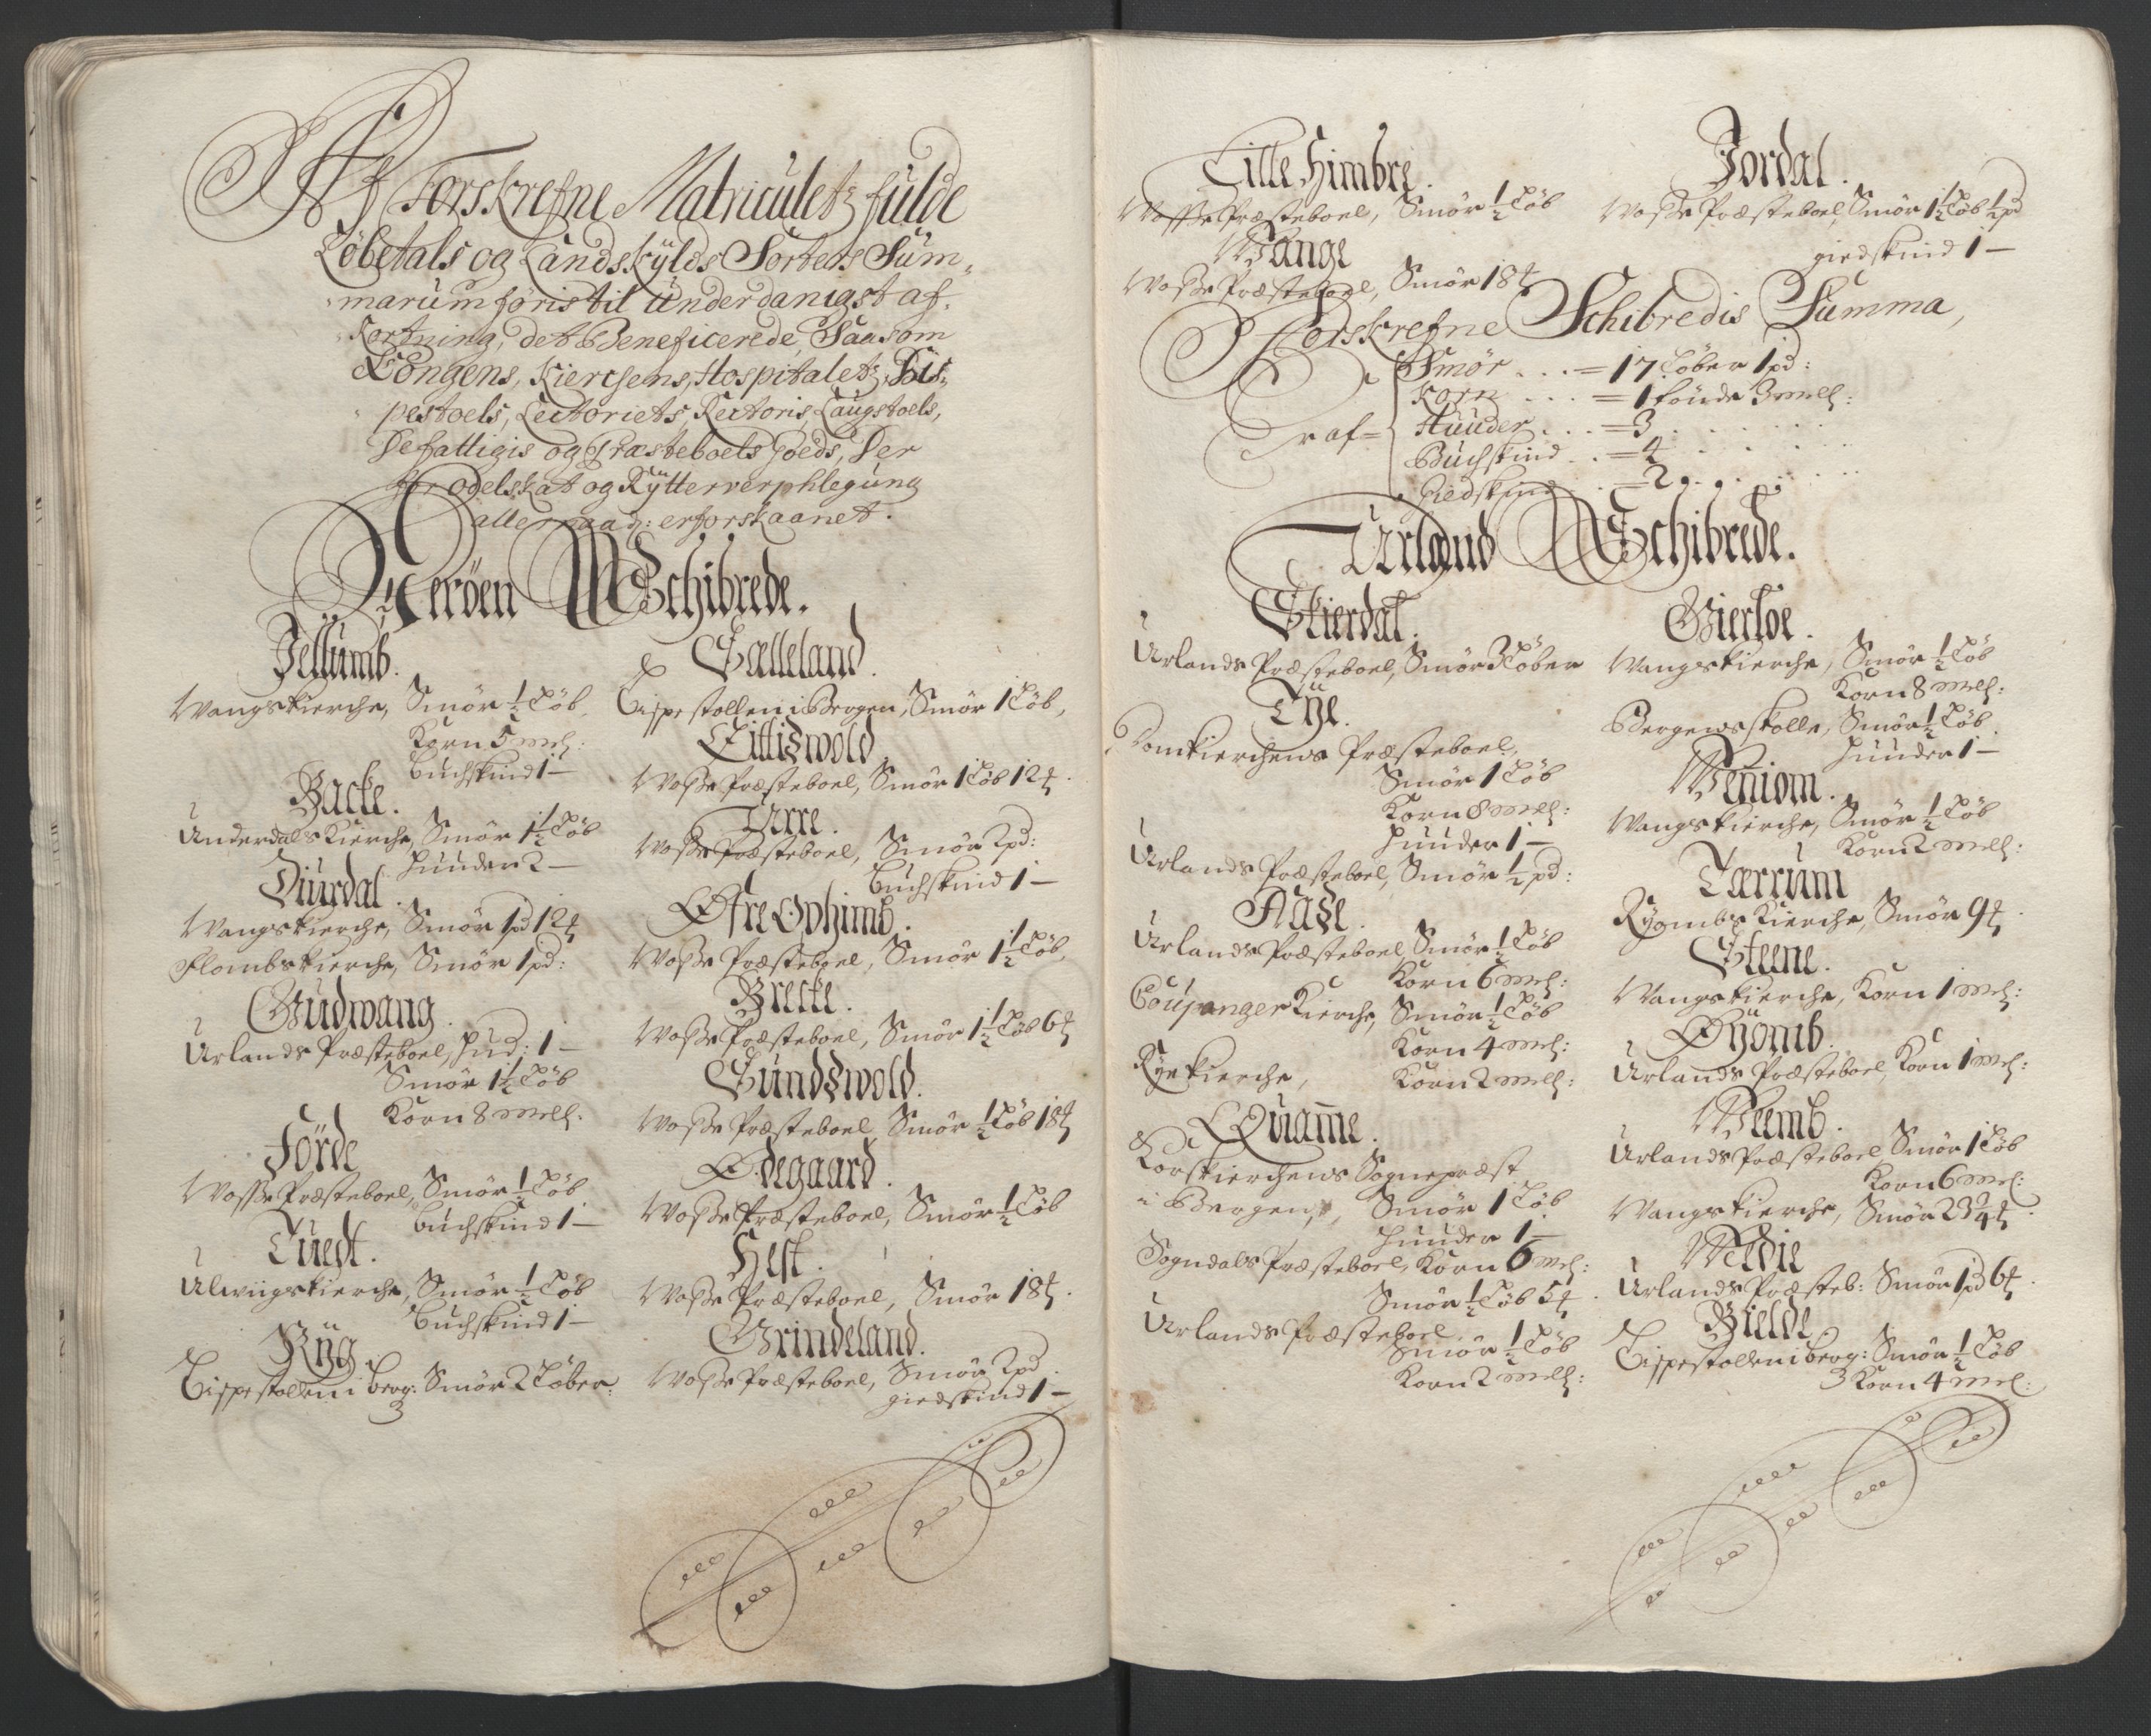 Af Forskrefne Matriculetz fulde
Løbetals og Landskylds Sorters Sum-
marum føris til Underdanigst af-
Kortning, det Beneficerede, Saasom
Kongens, Kierchens, Hospitaletz, Bis-
pestoels, Lectoriets, Rectoris, Laugstoels,
De fattigis og Præsteboels Goeds, Der
for odelskat og Rytterverphlegung
allernaad: er forskaanet.
Nerøen Schibrede.
Jellumb.
Wangs Kierche, Smør ½ Løb
Korn 5 mel:
Buchskind 1 —
Backe.
Underdals Kierche, Smør 1½ Løb
Huuder 2 —
Diurdal.
Wangs Kierche, Smør 1 pd 12 ℔
Flombs Kierche, Smør 1 pd:
Gudwang.
Urlands Præsteboel, Hud: 1 —
Smør 1½ Løb
Korn 8 mell:
Førde
Wosse Præsteboel, Smør ½ Løb
Buchskind 1 —
Tuedt.
Ulwiigs Kierche, Smør ½ Løb
Buchskind 1 —
Ryg.
Bispestollen i Berg: Smør 2 Løber:
Sælleland.
Bispestollen i Bergen, Smør 1 Løb,
Eittiswold
Wosse Præsteboel, Smør 1 Løb 12 ℔.
Urre.
Wosse Præsteboel, Smør 2 pd:
Buchskind 1 —
Øfre Ophimb.
Wosse Præsteboel, Smør 1½ Løb,
Brecke.
Wosse Præsteboel, Smør 1½ Løb 6 ℔
Sundswold.
Wosse Præsteboel, Smør ½ Løb 18 ℔
Ødegaard.
Wosse Præsteboel, Smør ½ Løb
Hest.
Wosse Præsteboel, Smør 18 ℔.
Grindeland.
Wosse Præsteboel, Smør 2 pd.
giedskind 1 —
Lille Himbre.
Wosse Præsteboel, Smør ½ Løb
Wange
Wosse Præsteboel, Smør 18 ℔
Jordal.
Wosse Præsteboel, Smør 1½ Løb ½ pd
giedskind 1 —
Forskrefne Schibredis Summa,
Smør . . . = 17 Løber 1 pd:
Korn . . . = 1 tønde 3 mell:
r af = Huuder . . . = 3 . . .
Buchskind . . = 4 . . .
Giedskind . . = 2 . . .
Urland Schibrede.
Skierdal.
Urlands Præsteboel, Smør 3 Løber
Tye.
Domkierchens Præsteboel,
Smør 1 Løb
Korn 8 mell:
Huuder 1 —
Urlands Præsteboel, Smør ½ pd:
Aase.
Urlands Præsteboel, Smør ½ Løb
Korn 6 mel:
Coupanger Kierche, Smør ½ Løb
Korn 4 mel:
Rye Kierche, Korn 2 mell:
Quamme.
Korskierchens Sognepræst
i Bergen, Smør 1 Løb
Huuder 1 —
Sogndals Præsteboel, Korn 6 mel:
Smør ½ Løb 5 ℔.
Urlands Præsteboel.
Smør ½ Løb
Korn 2 mell:
Gierløe.
Wangs Kierche, Smør ½ Løb
Korn 8 mell:
Bergens skolle, Smør ½ Løb
Huuder 1 —
Weniom.
Wangs Kierche, Smør ½ Løb
Korn 2 mell:
Tærrum
Ryombs Kierche, Smør 9 ℔.
Steene.
Wangs Kierche, Korn 1 mel:
Øyomb.
Urlands Præsteboel, Korn 1 mel:
Weemb.
Urlands Præsteboel, Smør 1 Løb
Korn 6 mel:
Wangs Kierche, Smør 23¾ ℔.
Weldie
Urlands Præsteb: Smør 1 pd 6 ℔.
Bielde
Bispestollen i Berg: Smør ½ Løb
Korn 4 mel: